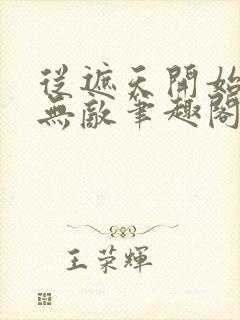 從遮天開始
無敵筆趣閣
王荣輝